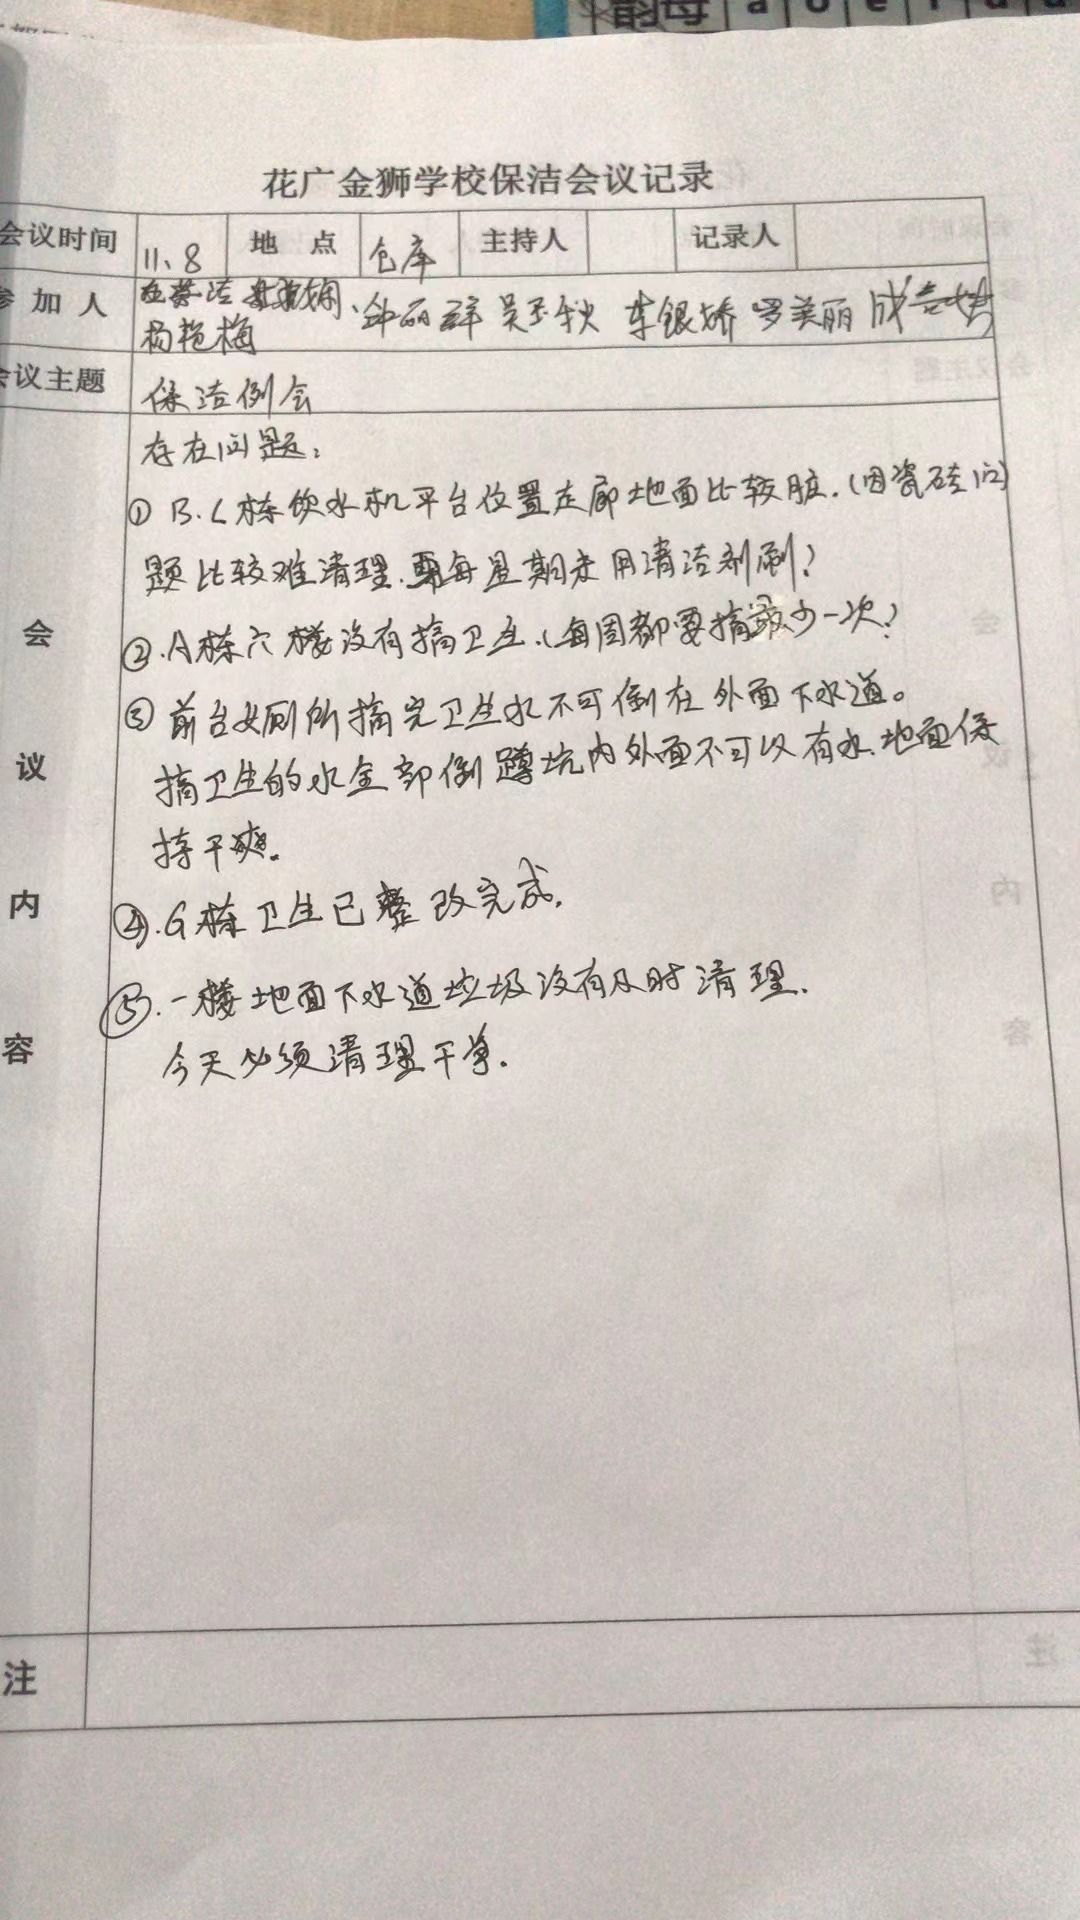 韵母 a o e i u
花广金狮学校保洁会议记录
会议时间 11、8 地 点 仓库 主持人 记录人
参 加 人 钟丽群 吴玉秋 车银娇 罗美丽
杨艳梅
会议主题 保洁例会
存在问题：
① B.C栋饮水机平台位置走廊地面比较脏.（因瓷砖问
题比较难清理.每星期未用清洁剂刷?
②.A栋六楼没有搞卫生.（每周都要搞最少一次?
③ 前台女厕所搞完卫生水不可倒在外面下水道。
搞卫生的水全部倒蹲坑内外面不可以有水.地面保
持干爽。
④.G栋卫生已整改完成.
⑤.一楼地面下水道垃圾没有及时清理.
今天必须清理干净.
会
议
内
容
注